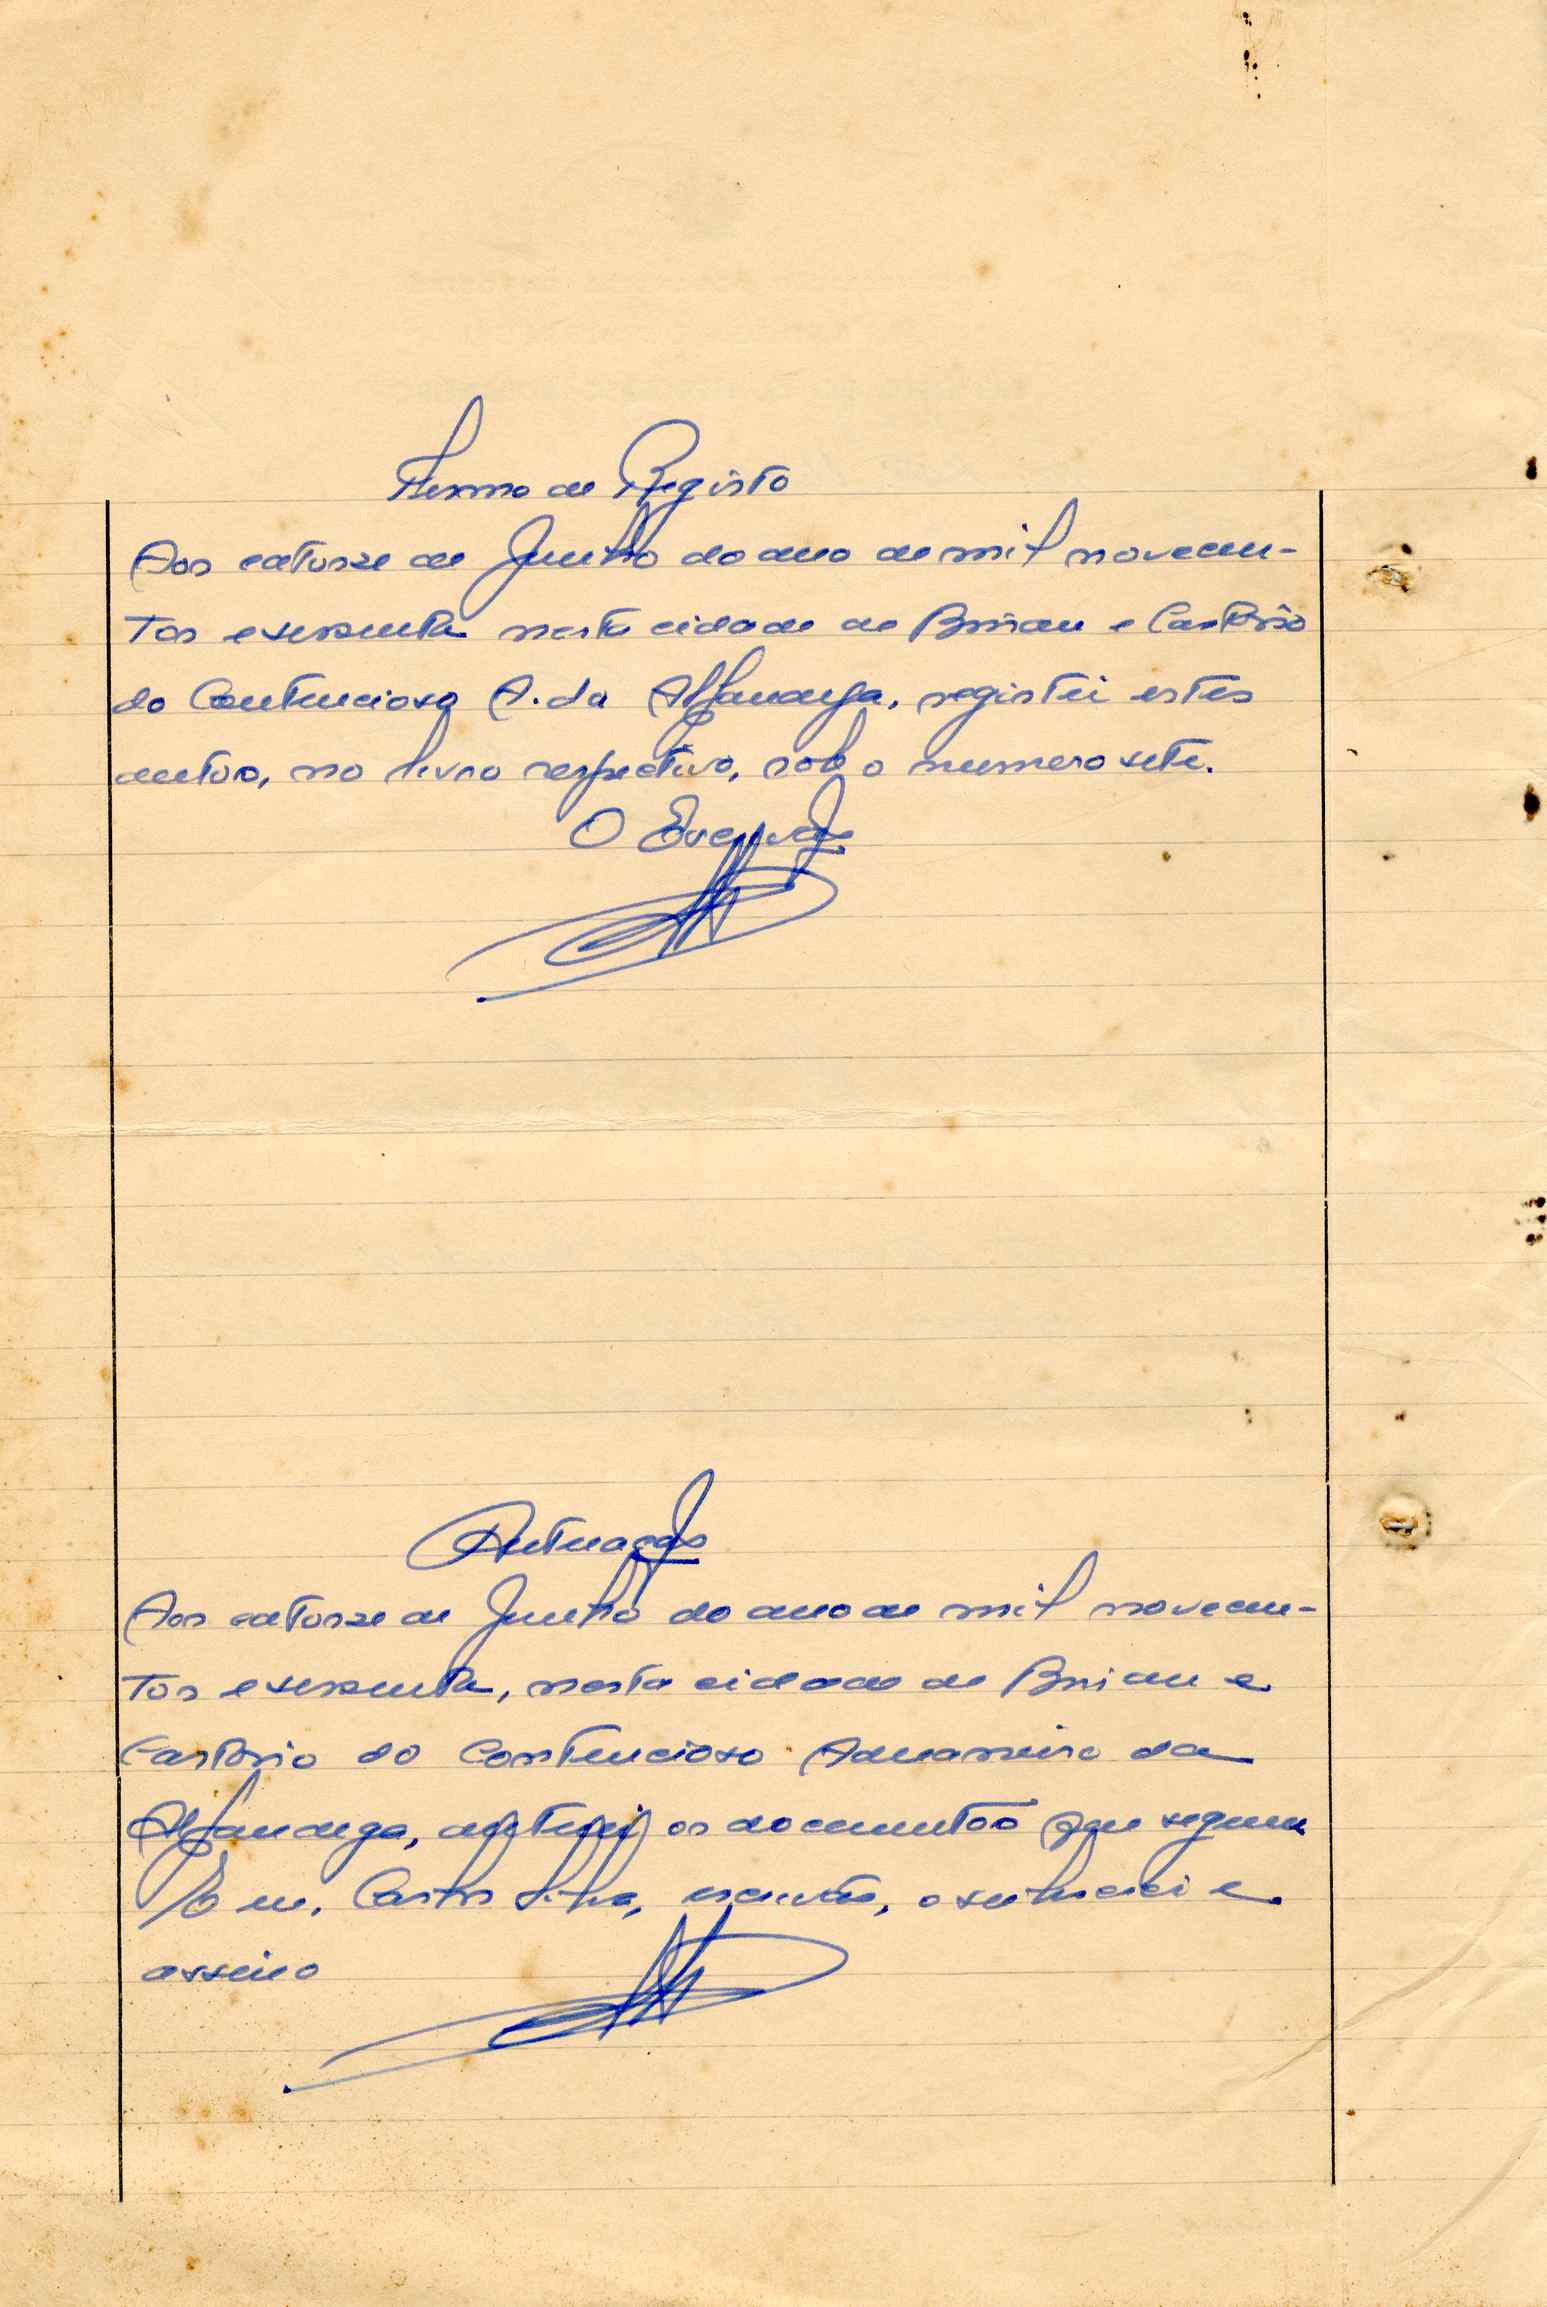 Termo de Registo
Aos catorze de Junho do ano de mil novecen-
tos e sessenta nesta cidade de Bissau e Cartório
do Contencioso A. da Alfandega, registei estes
autos, no livro respectivo, sob o numero sete.
O Escrivão
Autuação
Aos catorze de Junho do ano de mil novecen-
tos e sessenta, nesta cidade de Bissau e
Cartório do Contencioso Aduaneiro da
Alfandega, autuei os documentos que seguem
Eu, Castro Silva, escrivão, o subscrevi e
assino